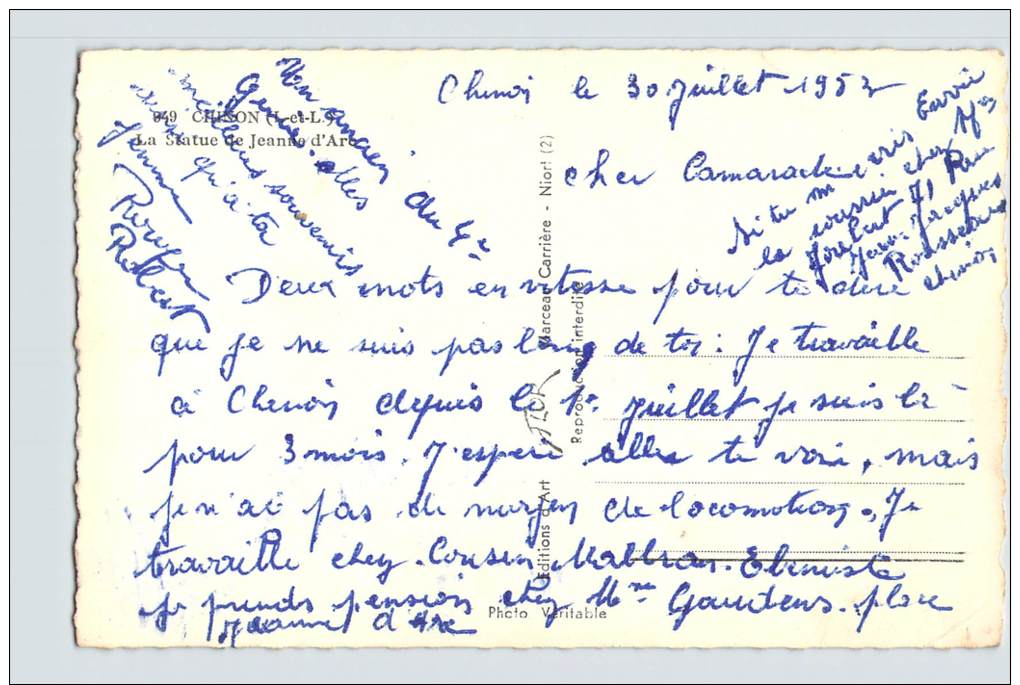 849 CHINON (I.-et-L.)
La Statue de Jeanne d'Arc
Chinon le 30 Juillet 1952
cher Camarade
Deux mots en vitesse pour te dire
que je ne suis pas loin de toi : Je travaille
à Chinon depuis le 1er Juillet je suis là
pour 3 mois. J'espère aller te voir, mais
je n'ai pas de moyen de locomotion, Je
travaille chez Cousin Ebeniste
je prends pension chez Mme Gaudens place
Jeanne d'Arc
Si tu m'écris Envoie
le courrier chez Mr
Joubert 71 Rue
Jean-Jacques
Rousseau
chinon
Un ancien du 4e
Genie.
meilleurs souvenirs
qu'à toi
Robert
Editions d'Art Marceau Carrière - Niort (2)
Reproduction interdite
Photo Véritable